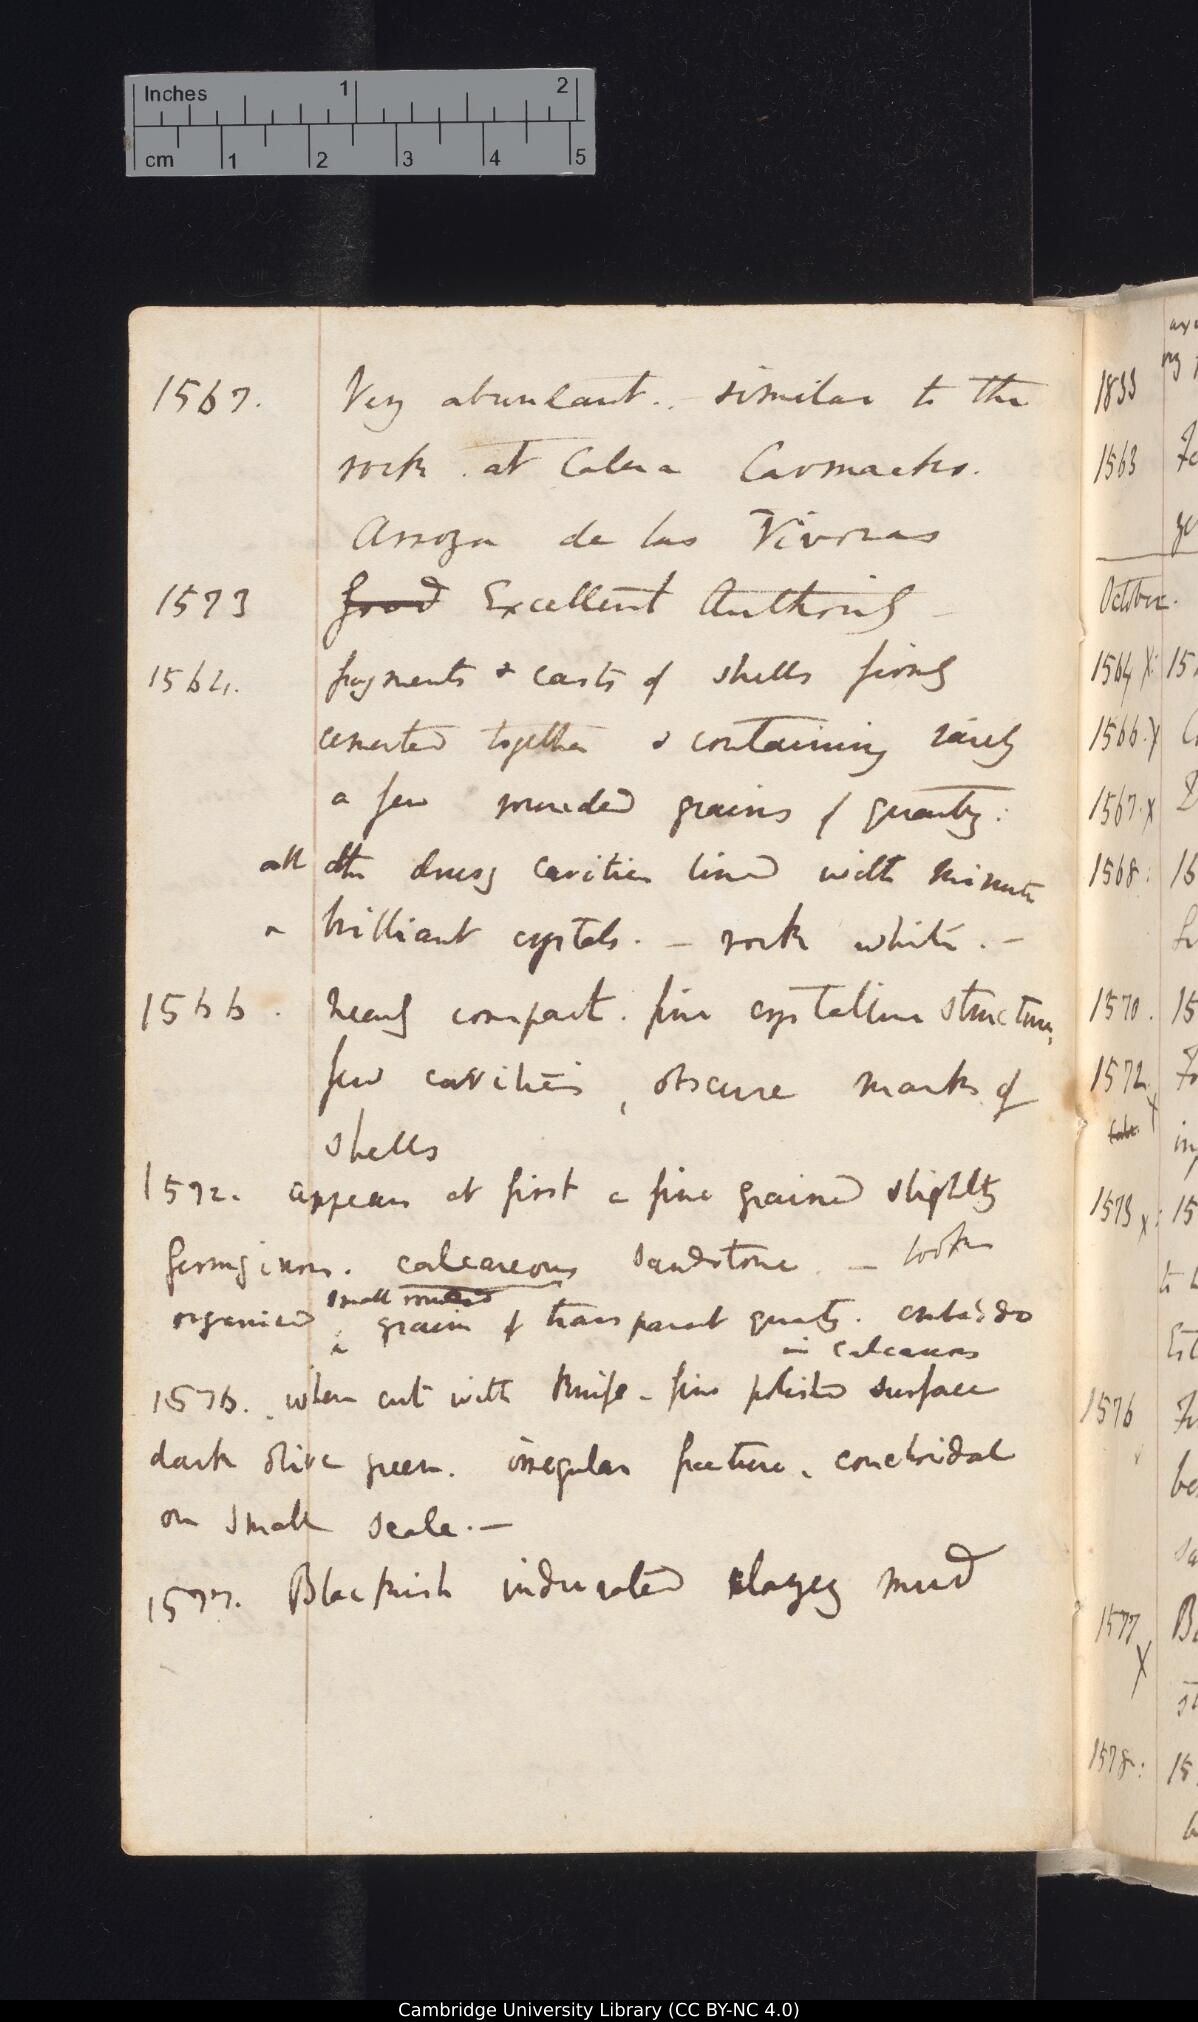 Inches 1 2
cm 1 2 3 4 5
1567. Very abundant. similar to the
rock at Calera
Arroya de las Vivoras
1573 Good Excellent
1564. fragments & casts of shells firmly
cemented together & containing rarely
a few rounded grains of quartz:
all the drusy cavities lined with minute
brilliant crystals. — rock white. —
1566. nearly compact. fine crystalline structure,
few cavities, obscure marks of
shells
1572. appears at first a fine grained slightly
ferruginous. calcareous sandstone — looks
small rounded
organized grain of transparent quartz.
in calcareous
1576. when cut with knife - fine polished surface
dark olive green. irregular fracture, conchoidal
on small scale. —
1577. Blackish indurated clayey mud
1833
1563
October.
1564 X: 15
1566. X
1567. X
1568: 16
1570. 15
1572. X
1573 X: 15
1576
1577 X
1578: 15
Cambridge University Library (CC BY-NC 4.0)